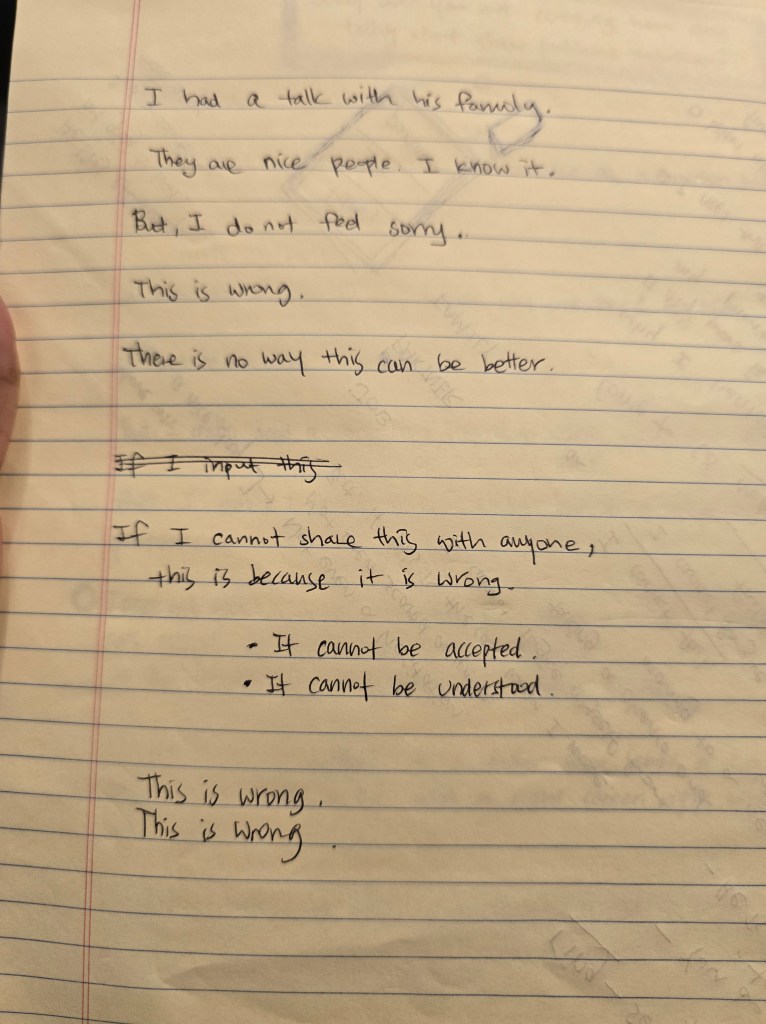 I had a talk with his family.
They are nice people. I know it.
But, I do not feel sorry.
This is wrong.
There is no way this can be better.
If I input this
If I cannot share this with anyone,
this is because it is wrong.
• It cannot be accepted.
• It cannot be understood.
This is wrong.
This is wrong.